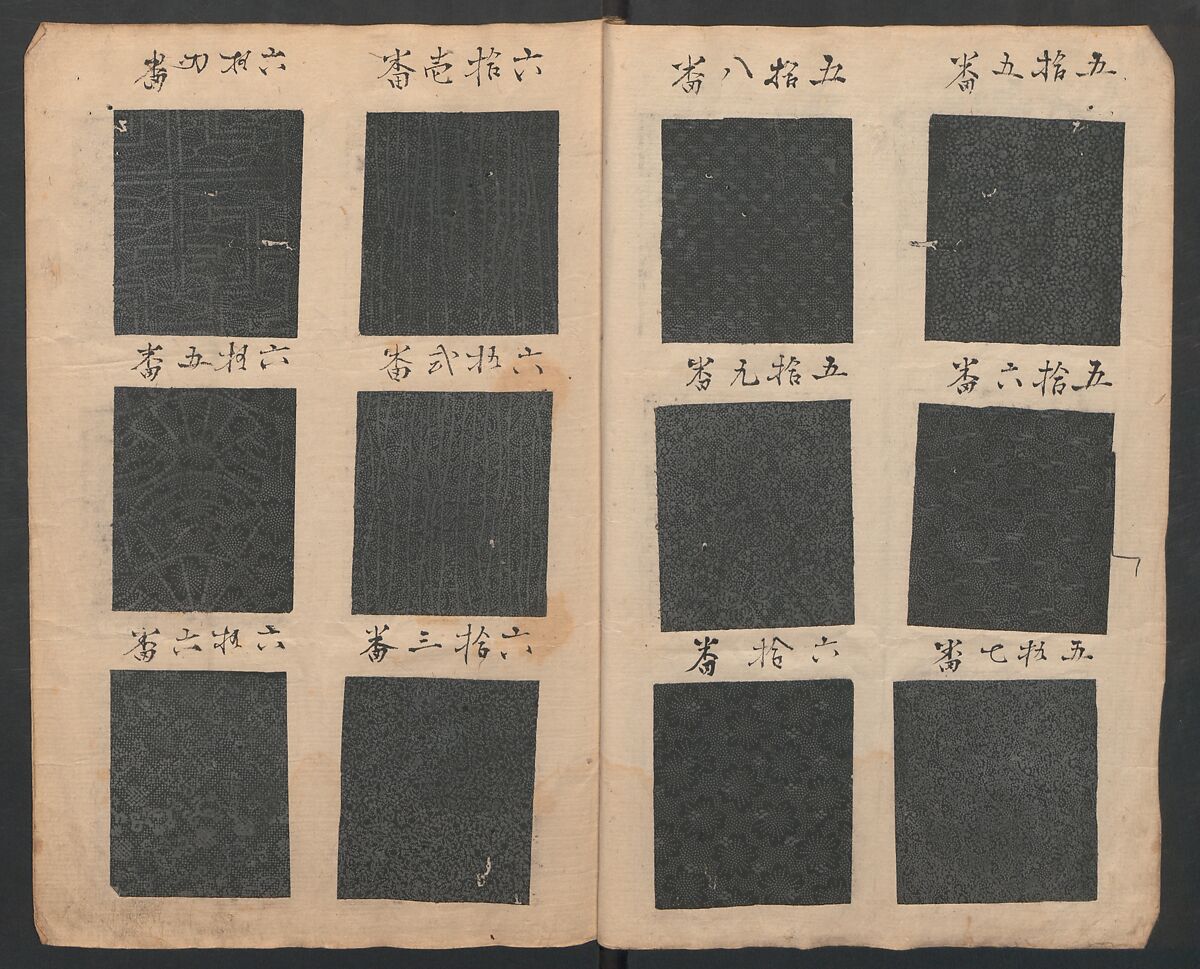 五拾五番
五拾六番
五拾七番
五拾八番
五拾九番
六拾番
六拾壱番
六拾弐番
六拾三番
六拾四番
六拾五番
六拾六番